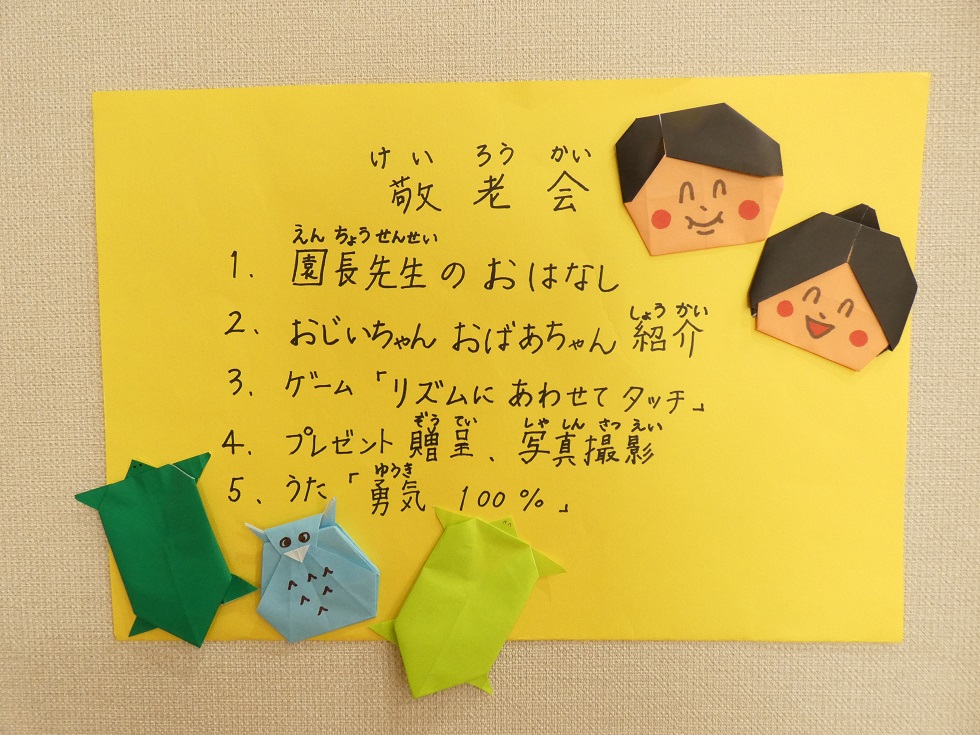 けい ろう かい
敬老会
えん ちょう せんせい
1. 園長先生のおはなし
しょう かい
2. おじいちゃん おばあちゃん 紹介
3. ゲーム「リズムに あわせて タッチ」
ぞう てい しゃ しん さつ えい
4. プレゼント贈呈、写真撮影
ゆうき
5、うた「勇気 100%」